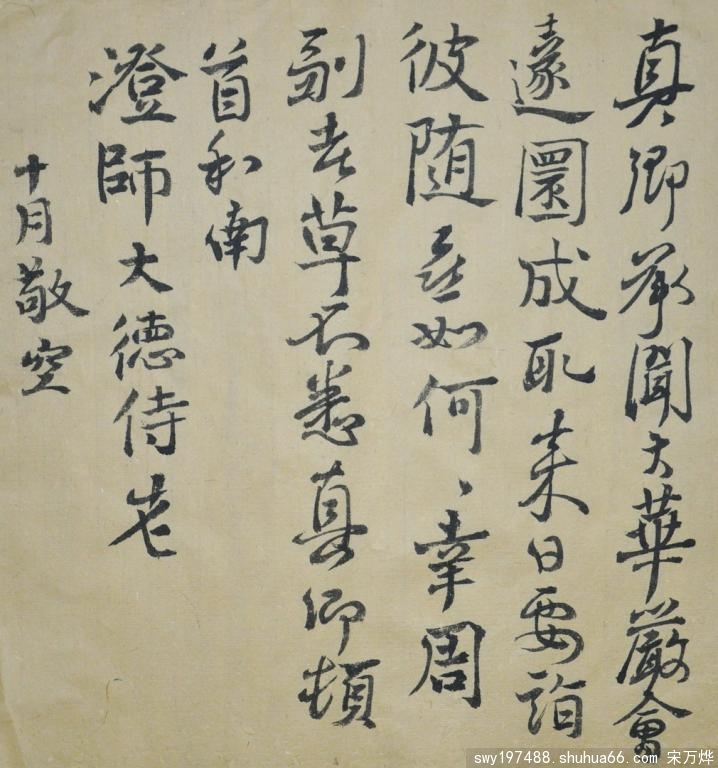 真卿承聞大華嚴會
遂圓成取來日要詣
彼随喜如何〻幸周
副老草不悉真卿頓
首和南
澄師大德侍者
十月敬空
swy197488.shuhua66.com 宋万烨